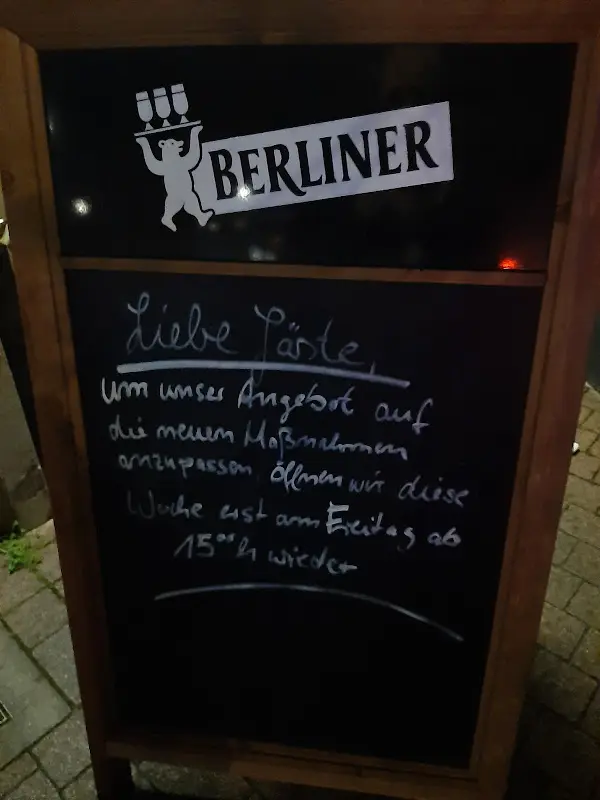 BERLINER
Liebe Gäste,
um unser Angebot auf
die neuen Maßnahmen
anzupassen, öffnen wir diese
Woche erst am Freitag ab
15⁰⁰h wieder